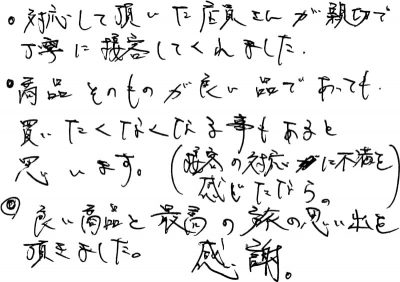 ○ 対応して頂いた店員さんが親切で
丁寧に接客してくれました.
○ 商品そのものが良い品であっても.
買いたくなくなる事もあると
思います。(接客の対応に不満を
感じたなら。)
◎ 良い商品と最高の旅の思い出を
頂きました。 感謝。